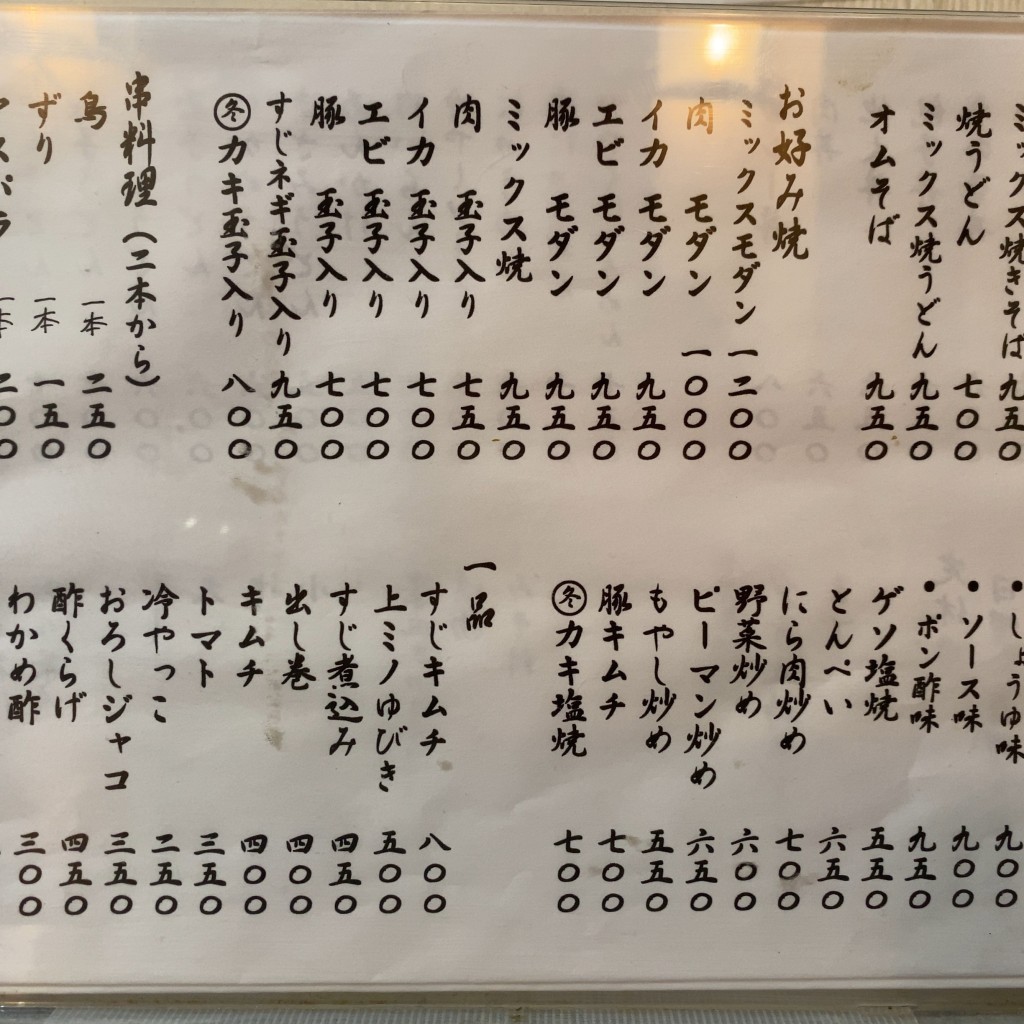 ミックス焼きそば 九五〇
焼うどん 七〇〇
ミックス焼うどん 九五〇
オムそば 九五〇
お好み焼
ミックスモダン 一二〇〇
肉 モダン 一〇〇〇
イカ モダン 九五〇
エビ モダン 九五〇
豚 モダン 九五〇
ミックス焼 九五〇
肉 玉子入り 七五〇
イカ 玉子入り 七〇〇
エビ 玉子入り 七〇〇
豚 玉子入り 七〇〇
すじネギ玉子入り 九五〇
㊢カキ玉子入り 八〇〇
串料理（二本から）
鳥 一本 二五〇
ずり 一本 一五〇
アスパラ 一本 二〇〇
・しょうゆ味
・ソース味 九〇〇
・ポン酢味 九五〇
ゲソ塩焼 五五〇
とんぺい 六五〇
にら肉炒め 七〇〇
野菜炒め 六〇〇
ピーマン炒め 六五〇
もやし炒め 五五〇
豚キムチ 七〇〇
㊢カキ塩焼 七〇〇
一品
すじキムチ 八〇〇
上ミノゆびき 五〇〇
すじ煮込み 四五〇
出し巻 四〇〇
キムチ 四〇〇
トマト 三五〇
冷やっこ 二五〇
おろしジャコ 三五〇
酢くらげ 四五〇
わかめ酢 三〇〇